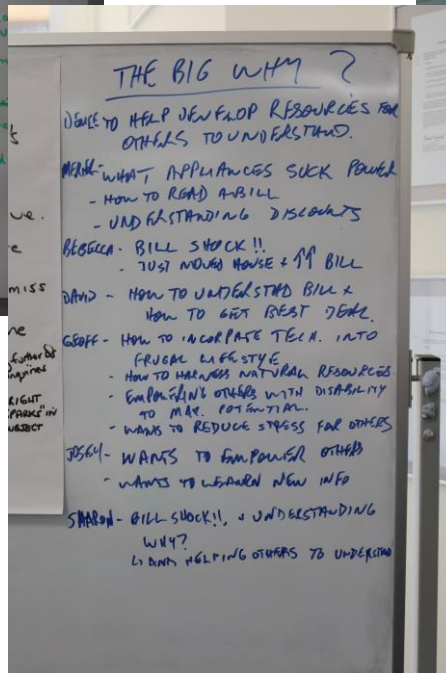 THE BIG WHY?
DENISE TO HELP DEVELOP RESOURCES FOR
OTHERS TO UNDERSTAND.
WHAT APPLIANCES SUCK POWER
- HOW TO READ A BILL
- UNDERSTANDING DISCOUNTS
REBECCA - BILL SHOCK!!
- JUST MOVED HOUSE + ↑↑ BILL
DAVID - HOW TO UNDERSTAD BILL +
HOW TO GET BEST DEAL.
GEOFF - HOW TO INCORPATE TECH. INTO
FRUGAL LIFESTYE
- HOW TO HARNESS NATURAL RESOURCES
- EMPOWERING OTHERS WITH DISABILITY
TO MAX. POTENTIAL.
- WANTS TO REDUCE STRESS FOR OTHERS
WANTS TO EMPOWER OTHERS
- WANTS TO LEARN NEW INFO
SHARON - BILL SHOCK!!, + UNDERSTANDING
WHY?
HELPING OTHERS TO UNDERSTAD
ue.
e
miss
ne
further
inquiries
RIGHT
SPARKS" IN